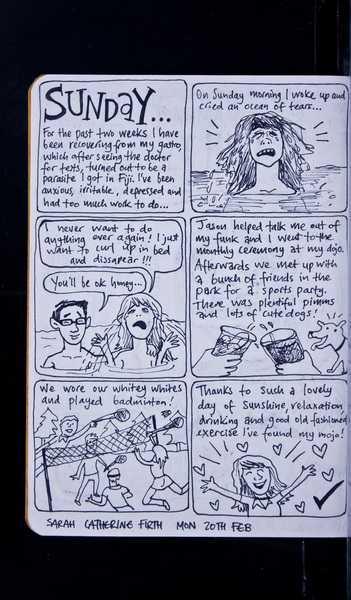 SUNDAY...
For the past two weeks I have
been recovering from my gastro,
which after seeing the doctor
for tests, turned out to be a
parasite I got in Fiji. I've been
anxious, irritable, depressed and
had too much work to do...
On Sunday morning I woke up and
cried an ocean of tears...
I never want to do
anything ever again! I just
want to curl up in bed
and dissapear!!!
You'll be ok honey...
Jason helped talk me out of
my funk and I went to the
monthly ceremony at my dojo.
Afterwards we met up with
a bunch of friends in the
park for a sports party.
There was plentiful pimms
and lots of cute dogs!
We wore our whitey whites
and played badminton!
Thanks to such a lovely
day of sunshine, relaxation,
drinking and good old-fashioned
exercise I've found my mojo!
SARAH CATHERINE FIRTH MON 20TH FEB